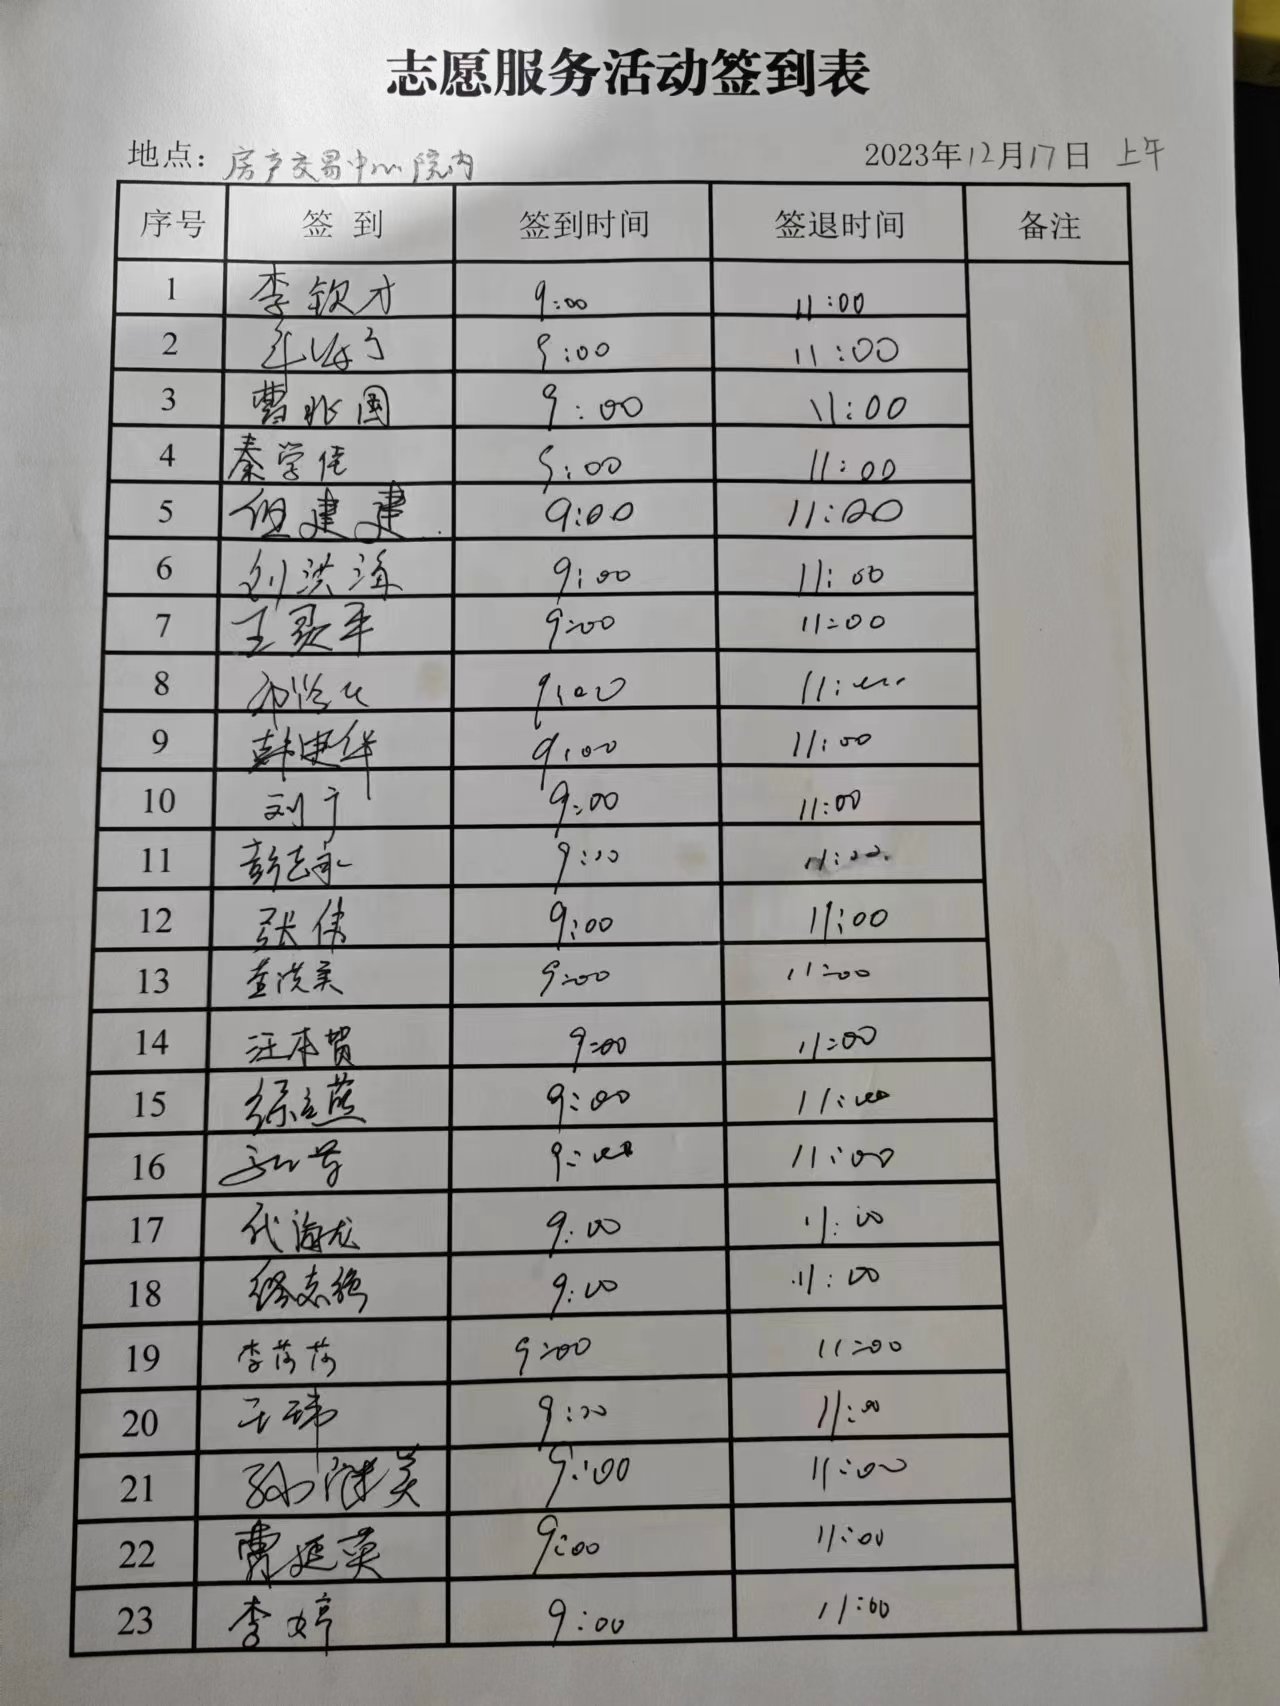 志愿服务活动签到表
地点：房产交易中心院内 2023年12月17日 上午
序号 签 到 签到时间 签退时间 备注
1 李钦才 9:00 11:00
2 9:00 11:00
3 曹兆国 9:00 11:00
4 秦学佳 9:00 11:00
5 但建建 9:00 11:00
6 刘洪海 9:00 11:00
7 王 平 9:00 11:00
8 9:00 11:00
9 韩建华 9:00 11:00
10 刘宁 9:00 11:00
11 彭志永 9:00 11:00
12 张伟 9:00 11:00
13 查洪美 9:00 11:00
14 汪本贺 9:00 11:00
15 徐立燕 9:00 11:00
16 9:00 11:00
17 代海龙 9:00 11:00
18 修志强 9:00 11:00
19 李莎莎 9:00 11:00
20 王玮 9:00 11:00
21 孙 美 9:00 11:00
22 曹延英 9:00 11:00
23 李婷 9:00 11:00